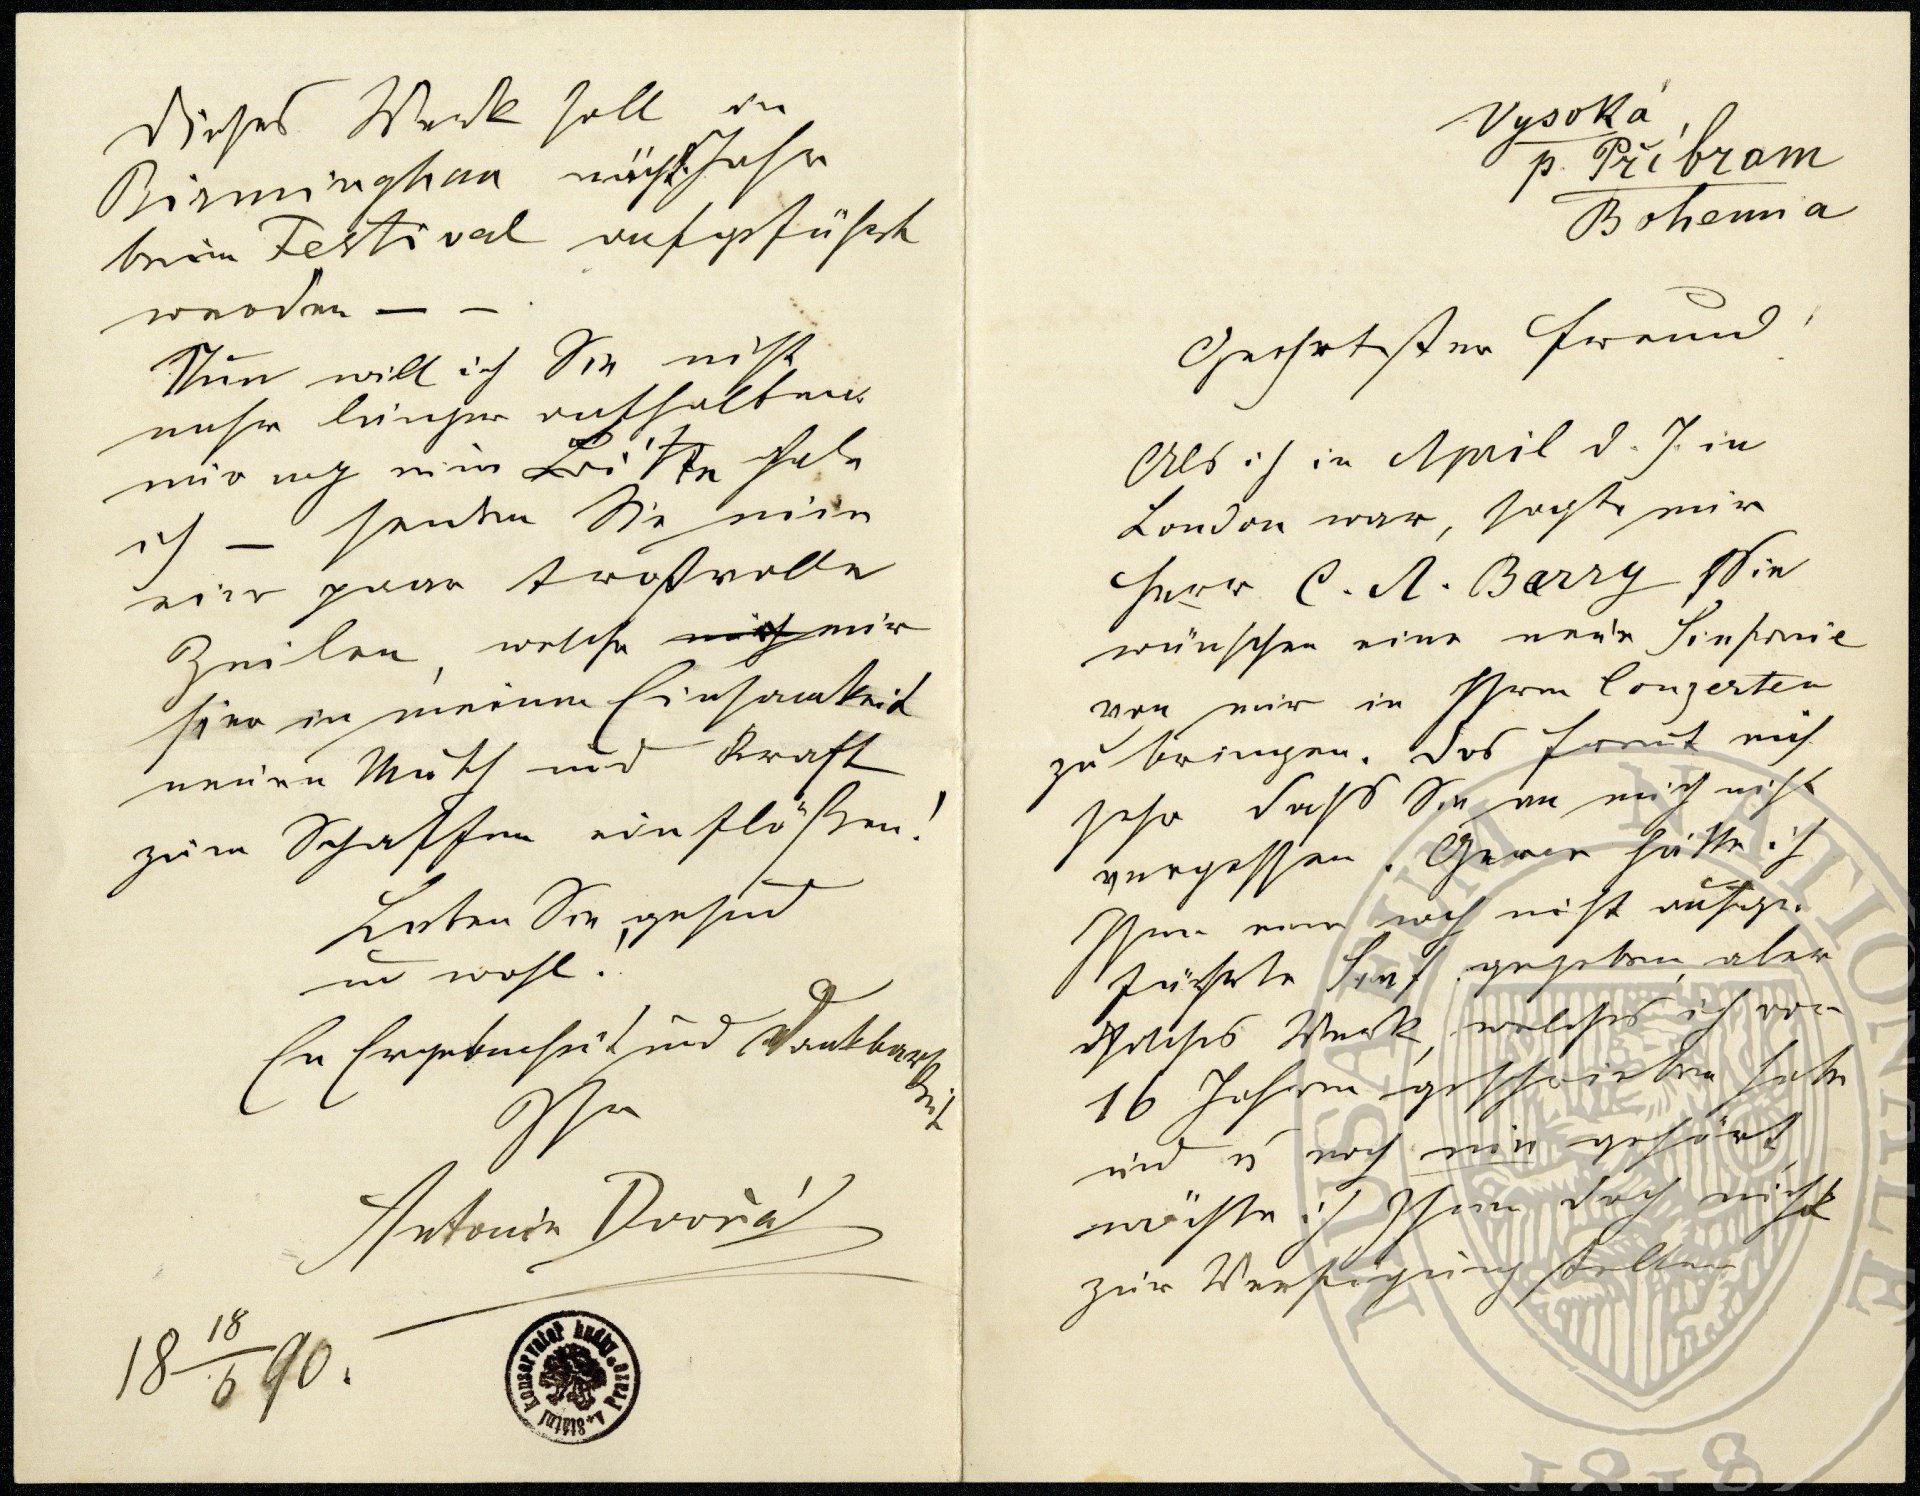 Vysoká
p. Příbram
Bohemia
Geehrtester Freund!
Als ich in April d. J. in
London war, sagte mir
Herr C. A. Barry Sie
wünschen eine neue Sinfonie
von mir in Ihren Conzerten
zu bringen. Das freut mich
sehr dass Sie an mich nicht
vergessen. Gerne hätte ich
Ihnen eine noch nicht aufge-
führte Sinf. gegeben, aber
solches Werk, welches ich vor
16 Jahren geschrieben habe
und es noch nie gehört,
möchte ich Ihnen doch nicht
zur Verfügung stellen
Dieses Werk soll in
Birmingham nächst. Jahr
beim Festival aufgeführt
werden — —
Nun will ich Sie nicht
mehr länger aufhalten.
nur noch eine Bitte habe
ich — senden Sie mir
ein paar trostvolle
Zeilen, welche mir
hier in meiner Einsamkeit
neuen Muth und Kraft
zum Schaffen einflößen!
Leben Sie gesund
und wohl!
In Ergebenheit und Dankbar
keit
Ihr
Antonín Dvořák
18 18/6 90.
Státní konservatoř hudby v Praze
MUSAEUM NATIONALE
1818